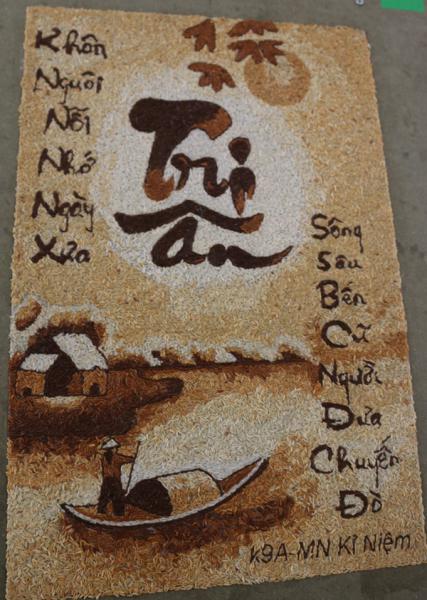 Khôn
Nguôi
Nỗi
Nhớ
Ngày
Xưa
Tri
Ân
Sông
Sâu
Bến
Cũ
Người
Đưa
Chuyến
Đò
K9A-MN Kỉ Niệm